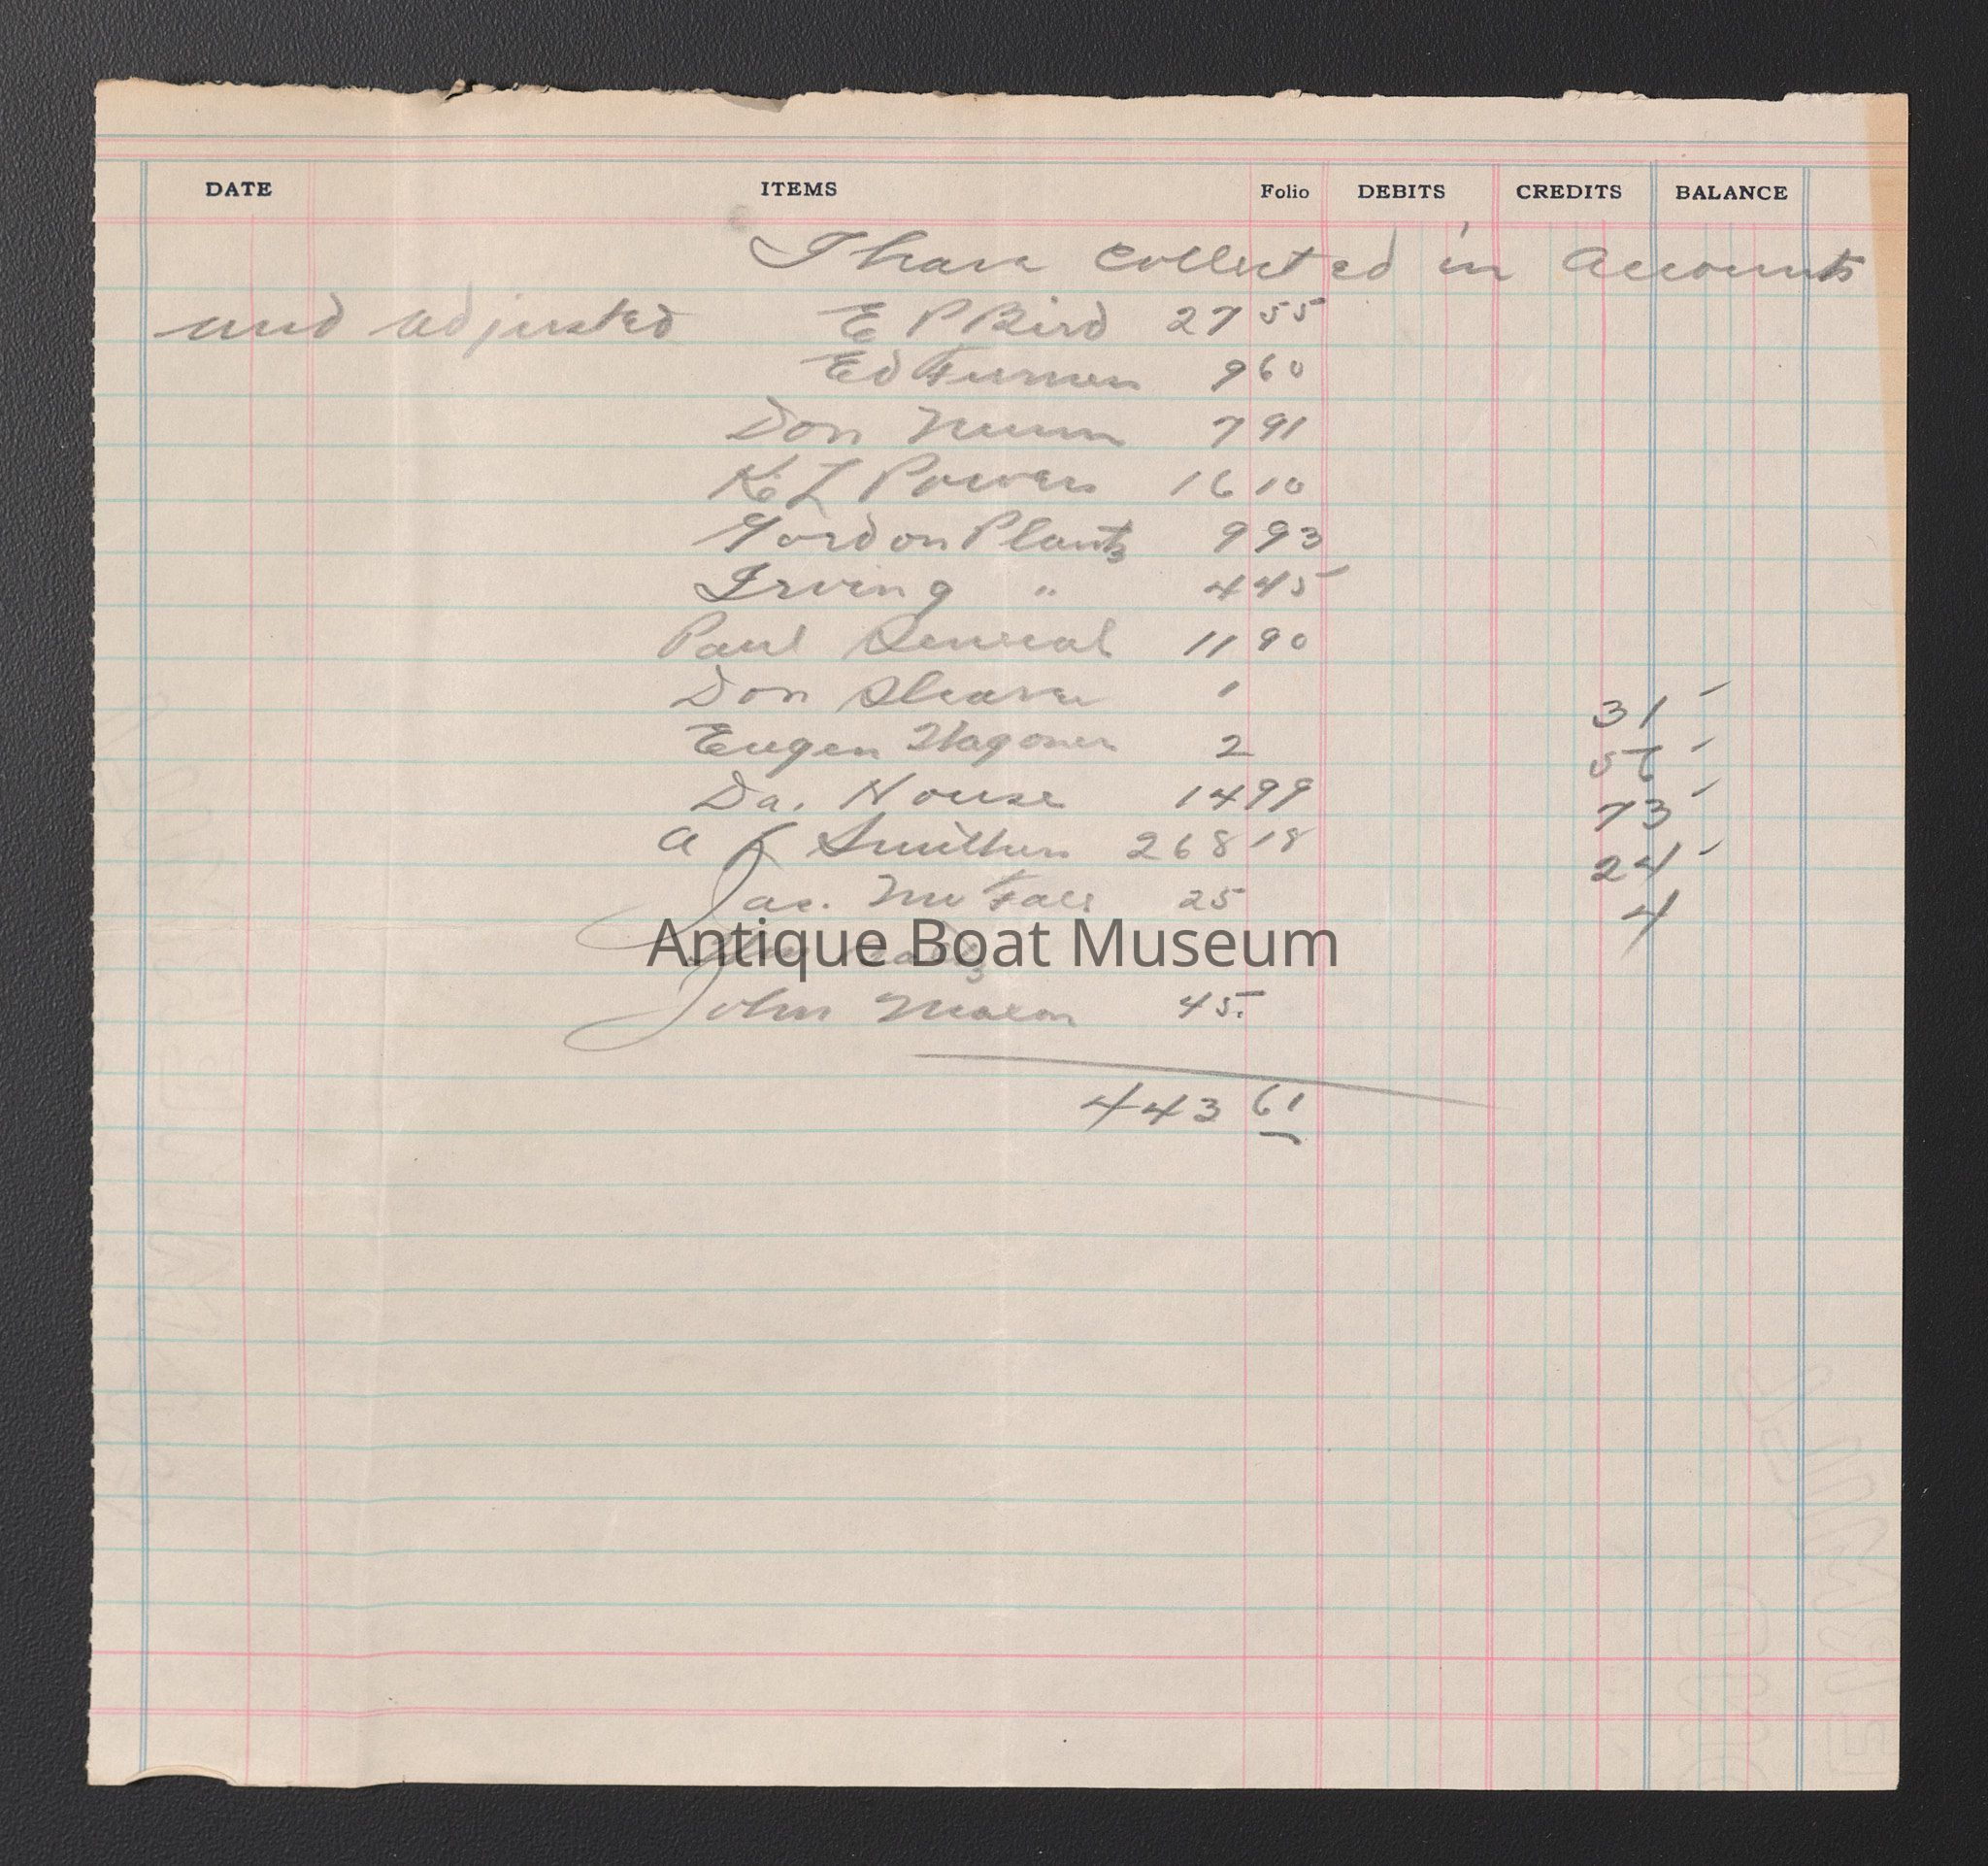 DATE ITEMS Folio DEBITS CREDITS BALANCE
I have collected in accounts
and adjusted E P Bird 27 55
Ed 9 60
Don Nunn 7 91
K L Powers 16 10
Gordon Plantz 9 93
Irving " 4 45
Paul 11 90
Don 1
31
Eugen Wagoner 2
56
Da. House 14 99
73
A Smithers 268 18
24
Jas. 25
4
Antique Boat Museum
John 45.
443 61